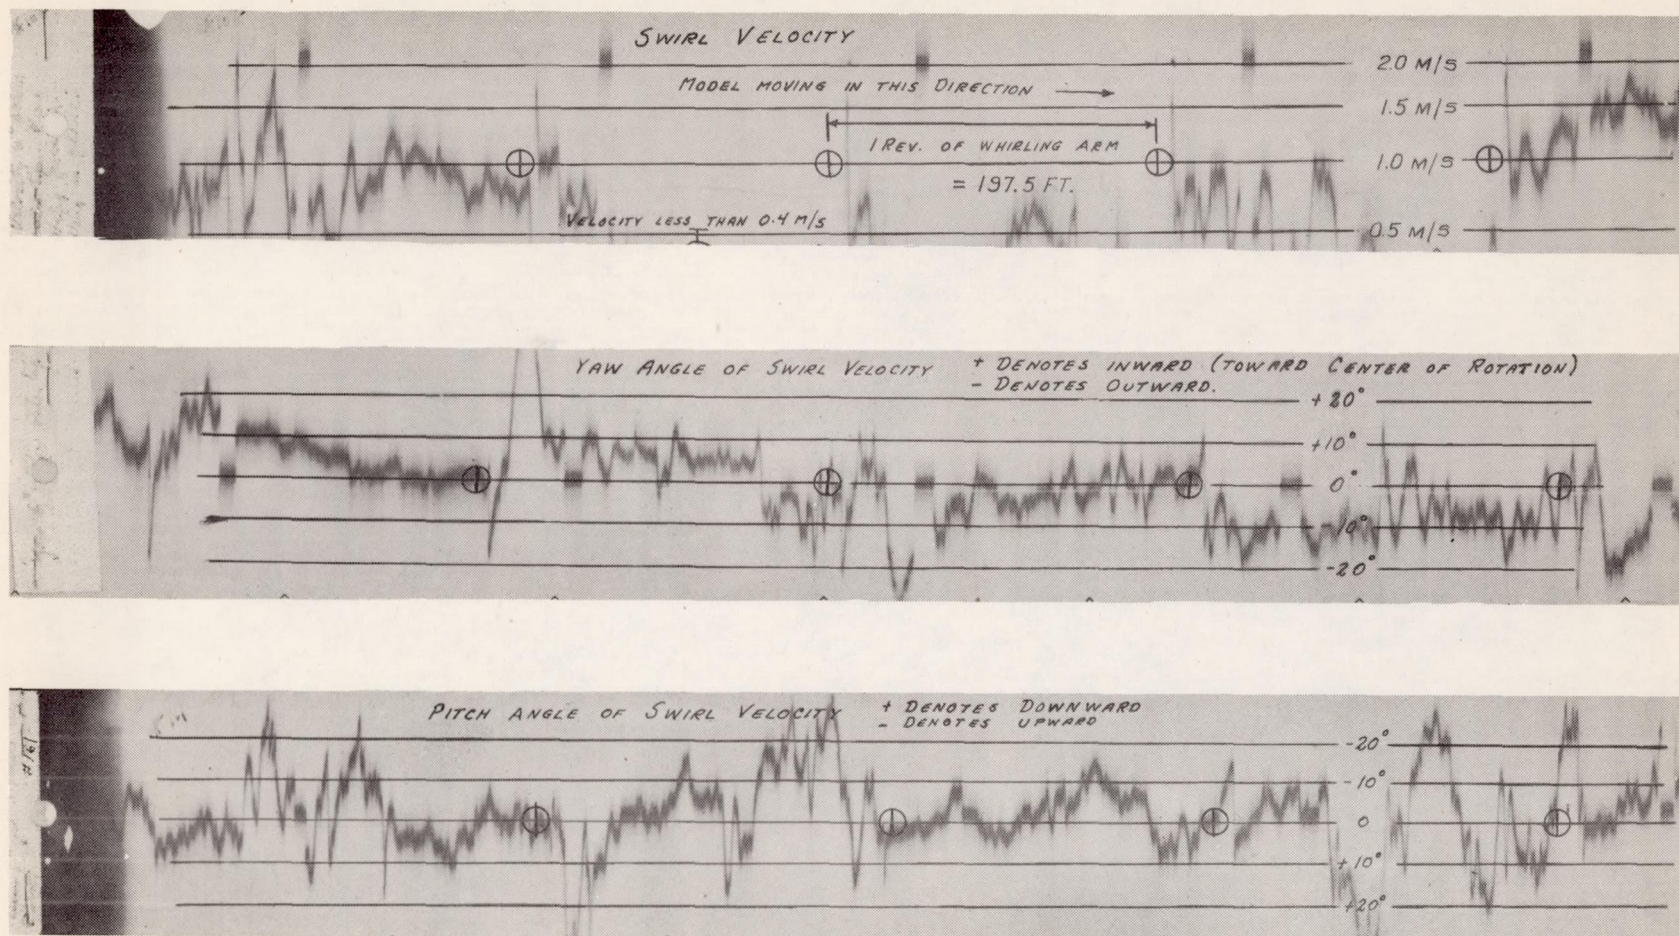 SWIRL VELOCITY
2.0 M/S
MODEL MOVING IN THIS DIRECTION
1.5 M/S
1 REV. OF WHIRLING ARM
1.0 M/S
= 197.5 FT.
VELOCITY LESS THAN 0.4 M/S
0.5 M/S
YAW ANGLE OF SWIRL VELOCITY + DENOTES INWARD (TOWARD CENTER OF ROTATION)
- DENOTES OUTWARD.
+20°
+10°
0°
-10°
-20°
PITCH ANGLE OF SWIRL VELOCITY + DENOTES DOWNWARD
- DENOTES UPWARD
#161
-20°
-10°
0
+10°
+20°